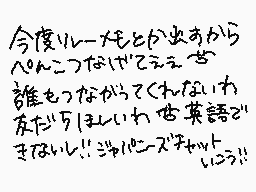 今度リレーメモとか出すから
ぺんこつなげてえぇ 苦
誰もつながってくれないわ
友だちほしいわ 苦 英語で
きないし!! ジャパニーズチャット
いこう!!